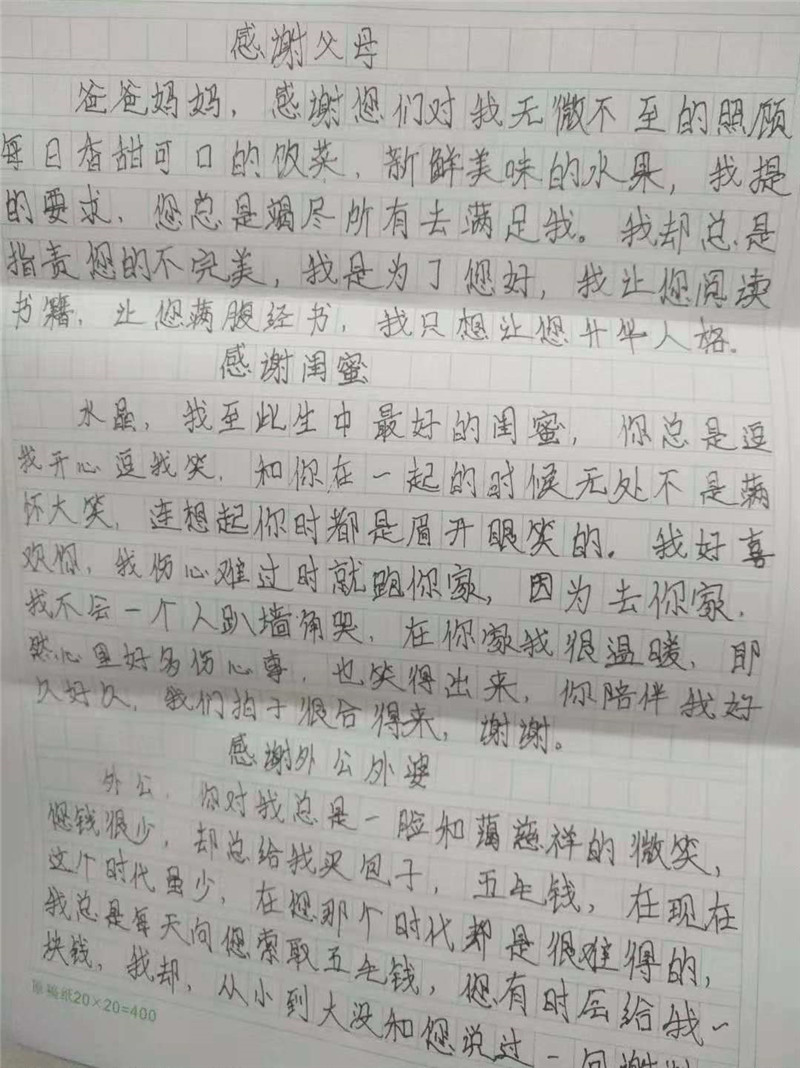 感谢父母
爸爸妈妈，感谢您们对我无微不至的照顾
每日香甜可口的饭菜，新鲜美味的水果，我提
的要求，您总是竭尽所有去满足我。我却总是
指责您的不完美，我是为了您好，我让您阅读
书籍，让您满腹经书，我只想让您升华人格。
感谢闺蜜
水晶，我至此生中最好的闺蜜，你总是逗
我开心逗我笑，和你在一起的时候无处不是满
怀大笑，连想起你时都是眉开眼笑的。我好喜
欢你，我伤心难过时就跑你家，因为去你家，
我不会一个人趴墙角哭，在你家我很温暖，即
然心里好多伤心事，也笑得出来，你陪伴我好
久好久，我们拍子很合得来，谢谢。
感谢外公外婆
外公，你对我总是一脸和蔼慈祥的微笑，
您钱很少，却总给我买包子，五毛钱，在现在
这个时代虽少，在您那个时代却是很难得的，
我总是每天向您索取五毛钱，您有时会给我一
块钱，我却，从小到大没和您说过一句谢
原稿纸20×20=400